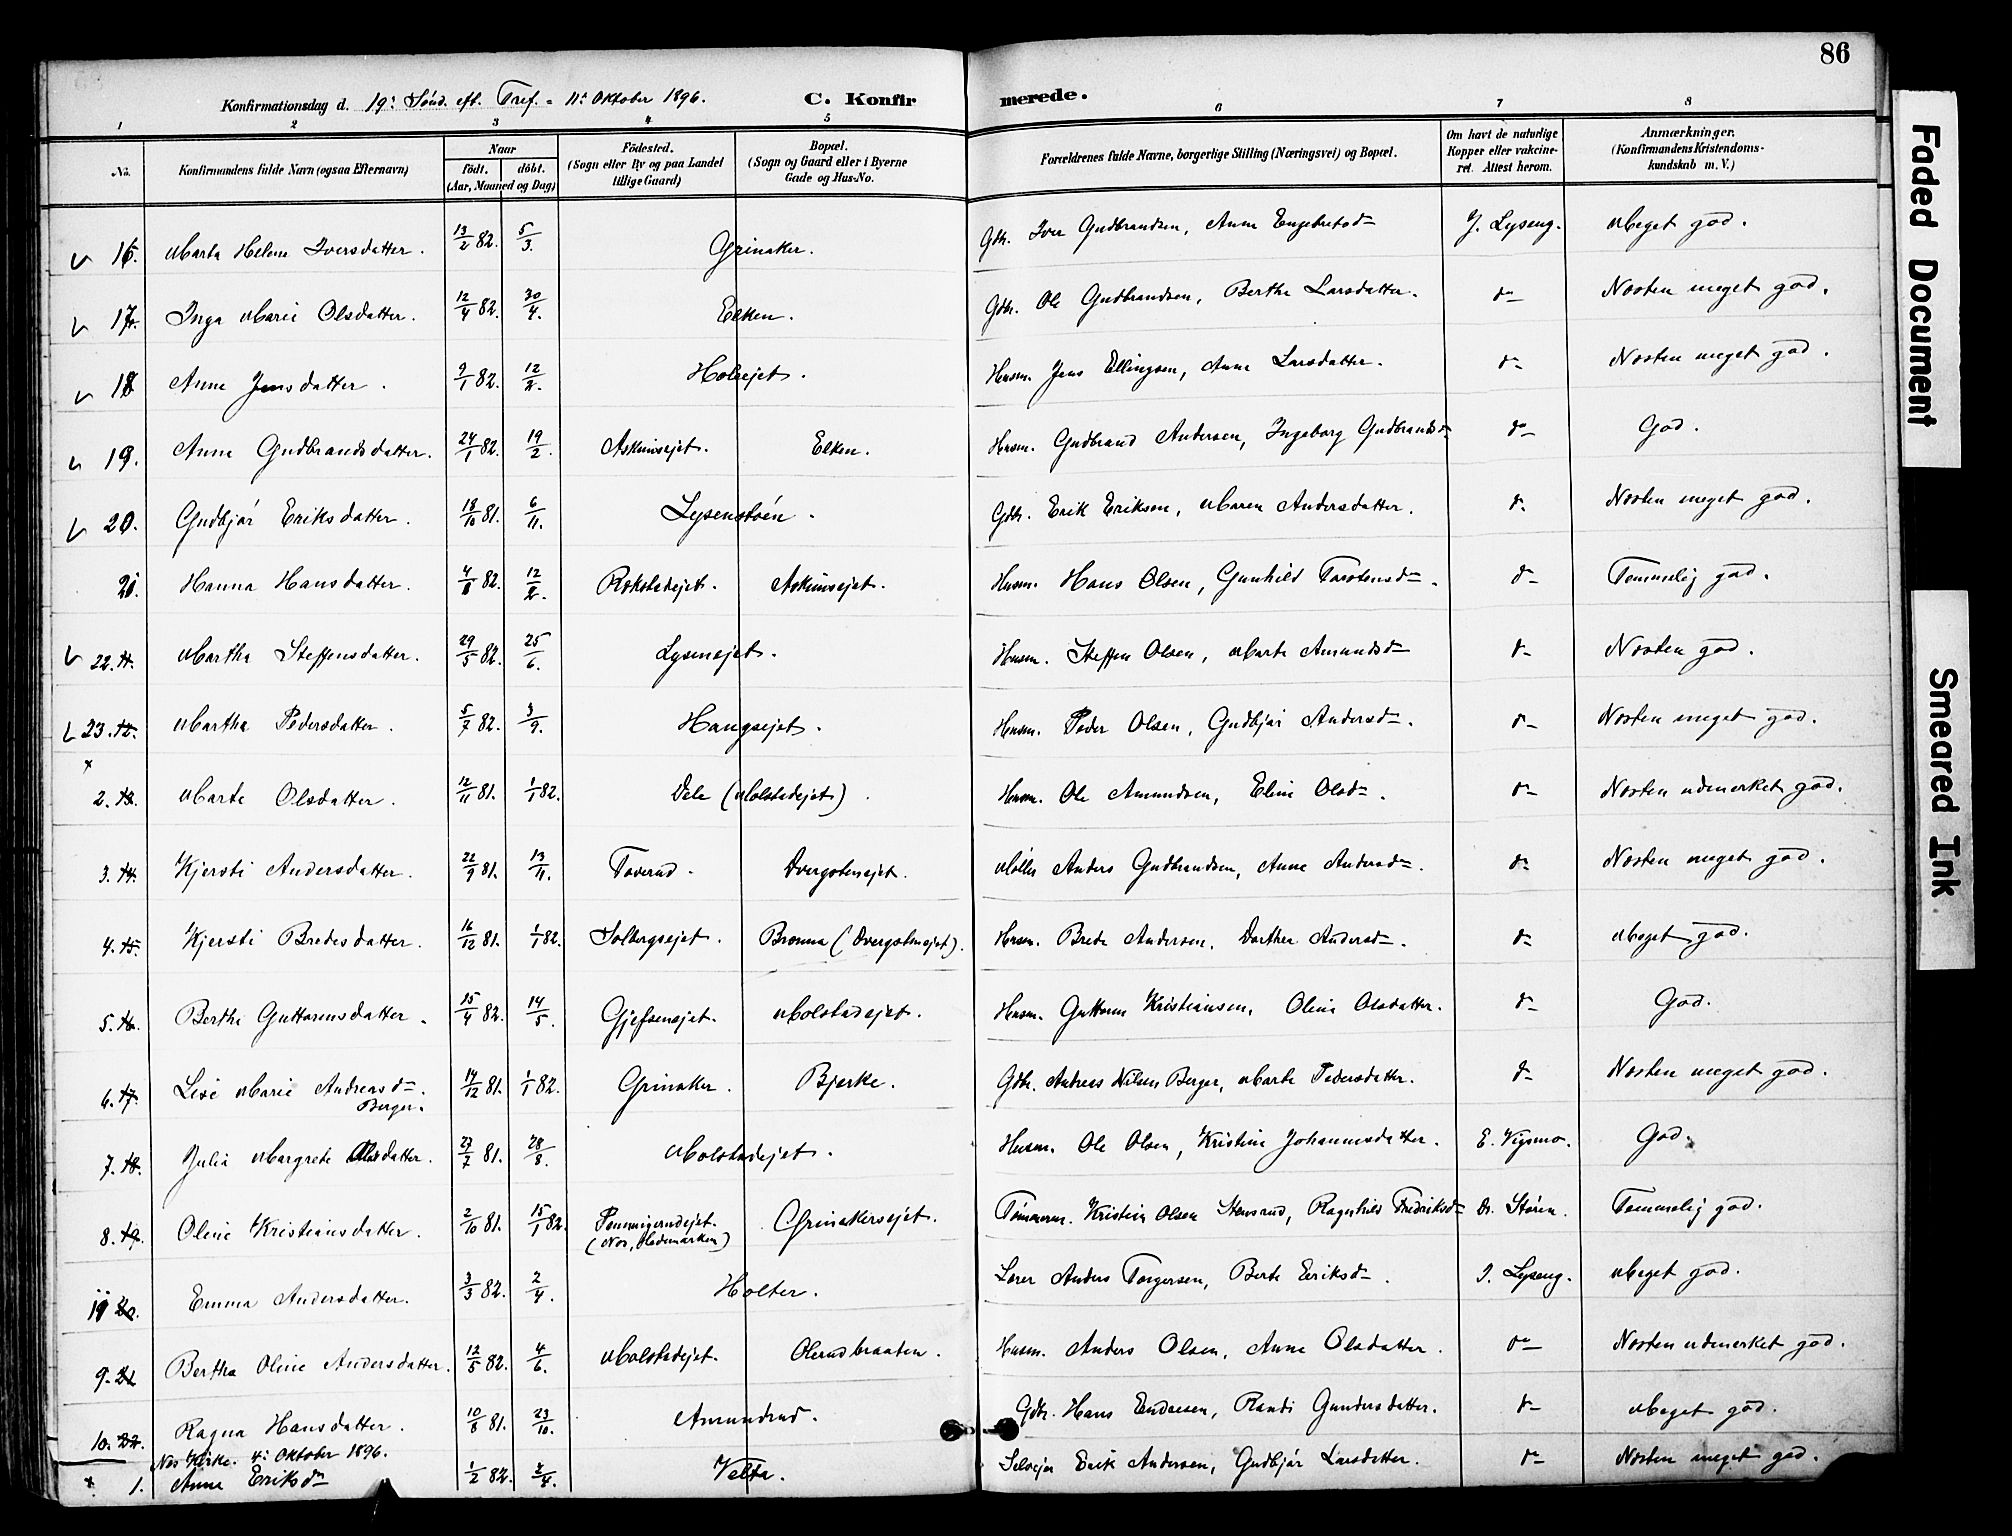 86
Konfirmationsdag d. 19: Sönd. eft. Tref. = 11: Oktober 1896.
C. Konfirmerede.
1 2 3 4 5 6 7 8
No. Konfirmandens fulde Navn (ogsaa Efternavn) Naar födt. döbt. (Aar, Maaned og Dag) Födested. (Sogn eller By og paa Landet tillige Gaard) Bopæl. (Sogn og Gaard eller i Byerne Gade og Hus-No. Forældrenes fulde Navne, borgerlige Stilling (Næringsvei) og Bopæl. Om havt de naturlige Kopper eller vaccineret. Attest herom. Anmærkninger. (Konfirmandens Kristendomskundskab m. V.)
16. Marta Helene Iversdatter. 13/2 82. 5/3. Grinaker. Gdb. Iver Gudbrandsen, Anne Engebretsd= J. Lyseng. Meget god.
17. Inga Marie Olsdatter. 12/4 82. 30/4. Elken. Gdb. Ole Gudbrandsen, Berthe Larsdatter. d= Næsten meget god.
18 Anne Jensdatter. 9/1 82. 12/2. Holsejet. Husm. Jens Ellingsen, Anne Larsdatter. d= Næsten meget god.
19. Anne Gudbrandsdatter. 24/1 82. 19/2. Askimsejet. Elken. Husm. Gudbrand Andersen, Ingeborg Gudbrandsd= d= God.
20. Gudbjør Eriksdatter. 18/10 81. 6/11. Lysenstøen. Gdb. Erik Eriksen, Maren Andersdatter. d. Næsten meget god.
21. Hanna Hansdatter. 82. 12/2. Rokstadejet. Askimsejet. Husm. Hans Olsen, Gunhild Torstensd=. d= Temmelig god.
22. Martha Steffensdatter. 29/5 82. 25/6. Lysensejet. Husm. Steffen Olsen, Marte Amundsd= d= Næsten god.
23. Martha Pedersdatter. 5/7 82. 3/9. Haugsejet. Husm. Peder Olsen, Gudbjør Andersd=. d= Næsten meget god.
2. Marte Olsdatter. 12/11 81. 1/1 82. Dele (Molstadejet). Husm. Ole Amundsen, Eline Olsd=. d= Næsten udmerket god.
3. Kjersti Andersdatter. 22/9 81. 13/11. Toverud. Dvergstensejet. Møller Anders Gudbrandsen, Anne Andersd=. d= Næsten meget god.
4. Kjersti Bredesdatter. 16/12 81. 1/1 82. Solbergsejet. Brønna (Dvergstensejet). Husm. Brede Andersen, Dorthea Andersd=. d= Meget god.
5. Berthe Guttormsdatter. 15/4 82. 14/5. Gjefsensejet. Molstadejet. Husm. Guttorm Kristiansen, Oline Olsdatter. d= God.
6. Lise Marie Andreasd=. Berger. 14/12 81. 1/1 82. Grinaker. Bjerke. Gdb. Andreas Nilsen Berger, Marte Pedersdatter. d= Næsten meget god.
7. Julia Margrete Olsdatter. 27/7 81. 28/8. Molstadejet. Husm. Ole Olsen, Kristine Johannesdatter. E. Vigsmo. God.
8. Oline Kristiansdatter. 2/10 81. 15/1 82. (Nes, Hedemarken) Grinakersejet. Tømmerm. Kristian Olsen Stensrud, Ragnhild Fredriksd= Dr. Støren. Temmelig god.
11 Emma Andersdatter. 3/3 82. 2/4. Holter. Lærer Anders Torgersen, Berte Eriksd=. J. Lyseng. Meget god.
9. Bertha Oline Andersdatter. 12/5 82. 4/6. Molstadejet. Olerudbraaten. Husm. Anders Olsen, Anne Olsdatter. d= Næsten udmerket god.
10. Ragna Hansdatter. 10/8 81. 23/10. Amundrud. Gdb. Hans Endresen, Randi Gundersdatter. d= Meget god.
Nes Kirke. 4: Oktober 1896.
1. Anne Eriksd= 1/2 82. Velta. Selvejer Erik Andersen, Gudbjør Larsdatter. d= Næsten meget god.
Faded Document
Smeared Ink